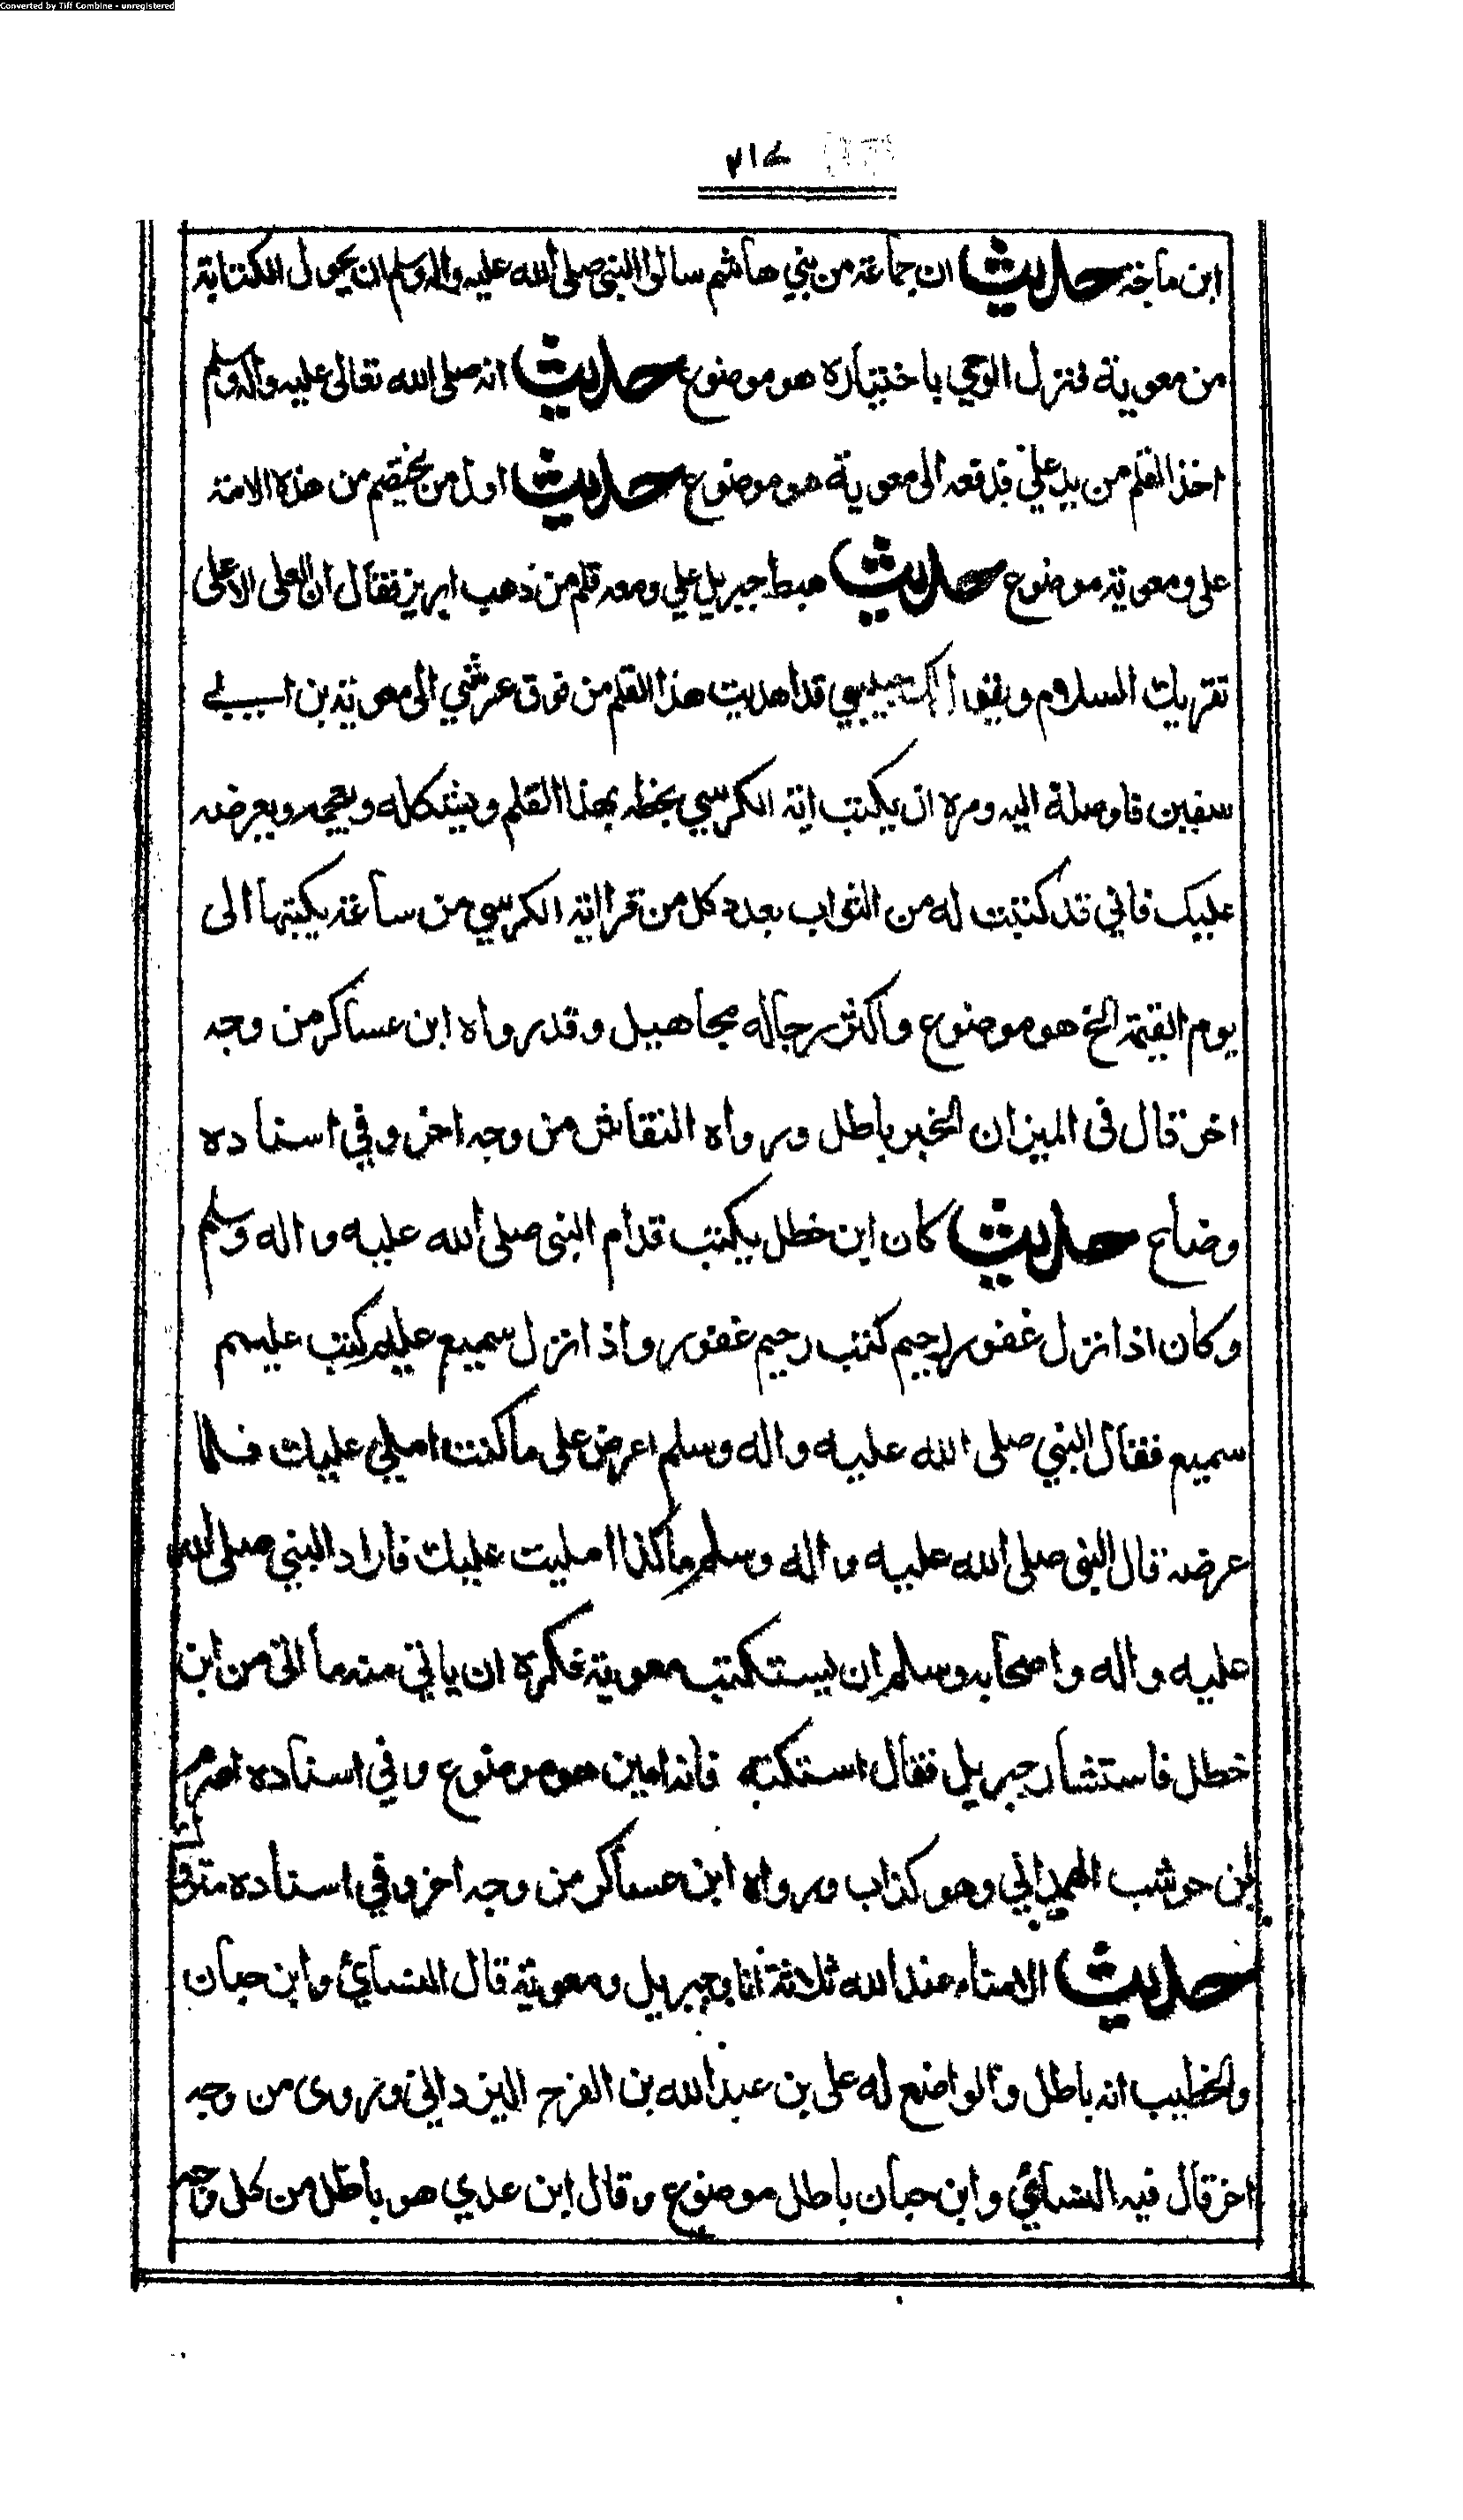 Converted by Tiff Combine - unregistered
٧١٤
ابن ماجة حديث ان جماعة من بني هاشم سالوا النبي صلى الله عليه واله وسلم ان يحول الكتابة
من معوية فنزل الوحي باختياره هو موضوع حديث انه صلى الله تعالى عليه واله وسلم
اخذ القلم من يد علي فدفعه الى معوية هو موضوع حديث اول من يختصم من هذه الامة
علي ومعوية موضوع حديث هبط جبريل علي ومعه قلم من ذهب ابريز فقال ان العلى الاعلى
يقريك السلام ويقول لك حبيبي قد اهديت هذا القلم من فوق عرشي الى معوية بن ابي
سفين فاوصله اليه ومره ان يكتب اية الكرسي بخطه بهذا القلم ويشكله ويعجمه ويعرضه
عليك فاني قد كتبت له من الثواب بعدد كل من قرا اية الكرسي من ساعة يكتبها الى
يوم القيمة الخ هو موضوع واكثر رجاله مجاهيل وقد رواه ابن عساكر من وجه
اخر قال فى الميزان الخبر باطل ورواه النقاش من وجه اخر وفي اسناده
وضاع حديث كان ابن خطل يكتب قدام النبي صلى الله عليه واله وسلم
وكان اذا نزل غفور رحيم كتب رحيم غفور واذا نزل سميع عليم كتب عليم
سميع فقال النبي صلى الله عليه واله وسلم اعرض على ما كنت املي عليك فلما
عرضه قال النبي صلى الله عليه واله وسلم ما كذا امليت عليك فاراد النبي صلى الله
عليه واله واصحابه وسلم ان يستكتب معوية فكره ان ياتي منه ما اتى من ابن
خطل فاستشار جبريل فقال استكتبه فانه امين هو موضوع وفي اسناده اصرم
بن حوشب الهمداني وهو كذاب ورواه ابن عساكر من وجه اخر وفي اسناده متروك
حديث الامناء عند الله ثلاثة انا وجبريل ومعوية قال النسائي وابن حبان
والخطيب انه باطل والواضع له علي بن عبد الله بن الفرج البرداني وروى من وجه
اخر قال فيه النسائي وابن حبان باطل موضوع وقال ابن عدي هو باطل من كل وجه